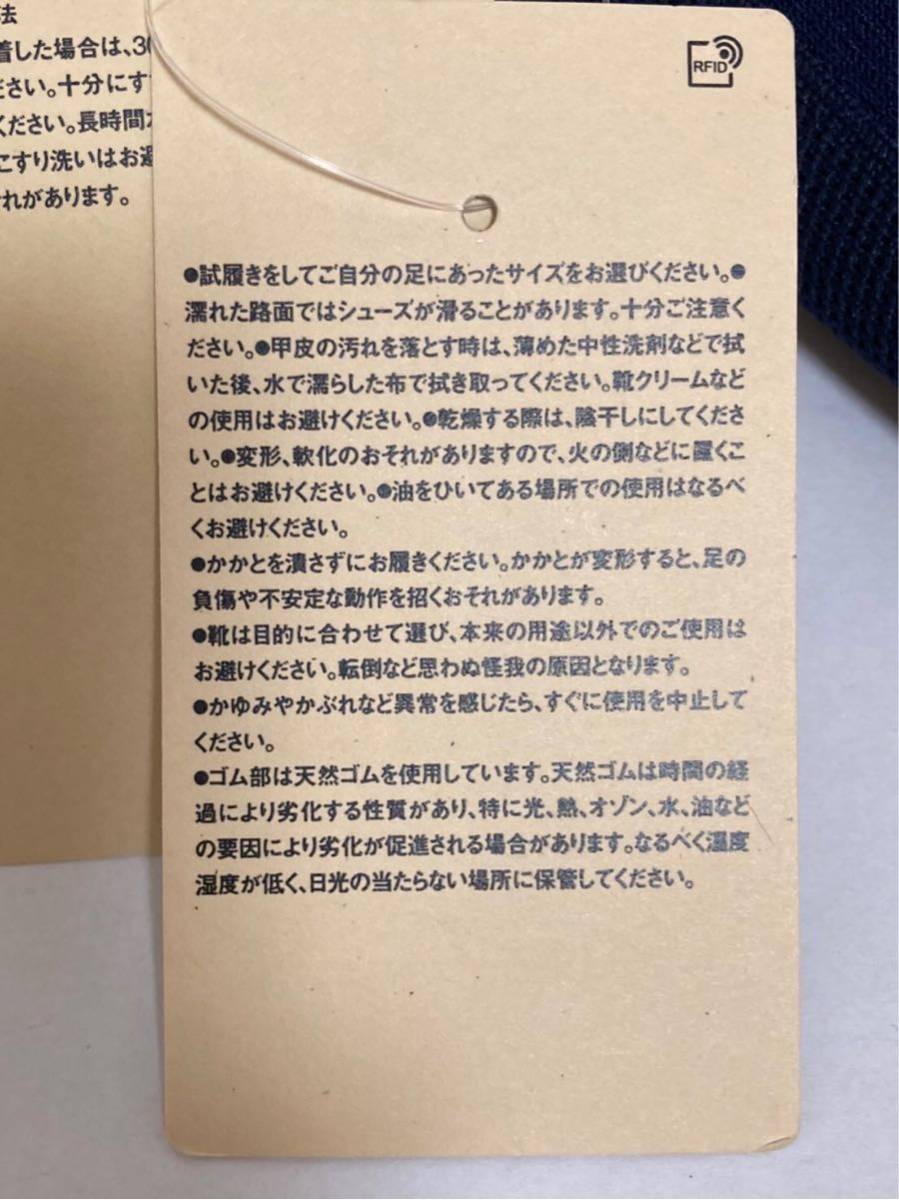 法
着した場合は、30
ださい。十分にすす
ください。長時間
こすり洗いはお避
れがあります。
RFID
●試履きをしてご自分の足にあったサイズをお選びください。●
濡れた路面ではシューズが滑ることがあります。十分ご注意く
ださい。●甲皮の汚れを落とす時は、薄めた中性洗剤などで拭
いた後、水で濡らした布で拭き取ってください。靴クリームなど
の使用はお避けください。●乾燥する際は、陰干しにしてくださ
い。●変形、軟化のおそれがありますので、火の側などに置くこ
とはお避けください。●油をひいてある場所での使用はなるべ
くお避けください。
●かかとを潰さずにお履きください。かかとが変形すると、足の
負傷や不安定な動作を招くおそれがあります。
●靴は目的に合わせて選び、本来の用途以外でのご使用は
お避けください。転倒など思わぬ怪我の原因となります。
●かゆみやかぶれなど異常を感じたら、すぐに使用を中止して
ください。
●ゴム部は天然ゴムを使用しています。天然ゴムは時間の経
過により劣化する性質があり、特に光、熱、オゾン、水、油など
の要因により劣化が促進される場合があります。なるべく温度
湿度が低く、日光の当たらない場所に保管してください。